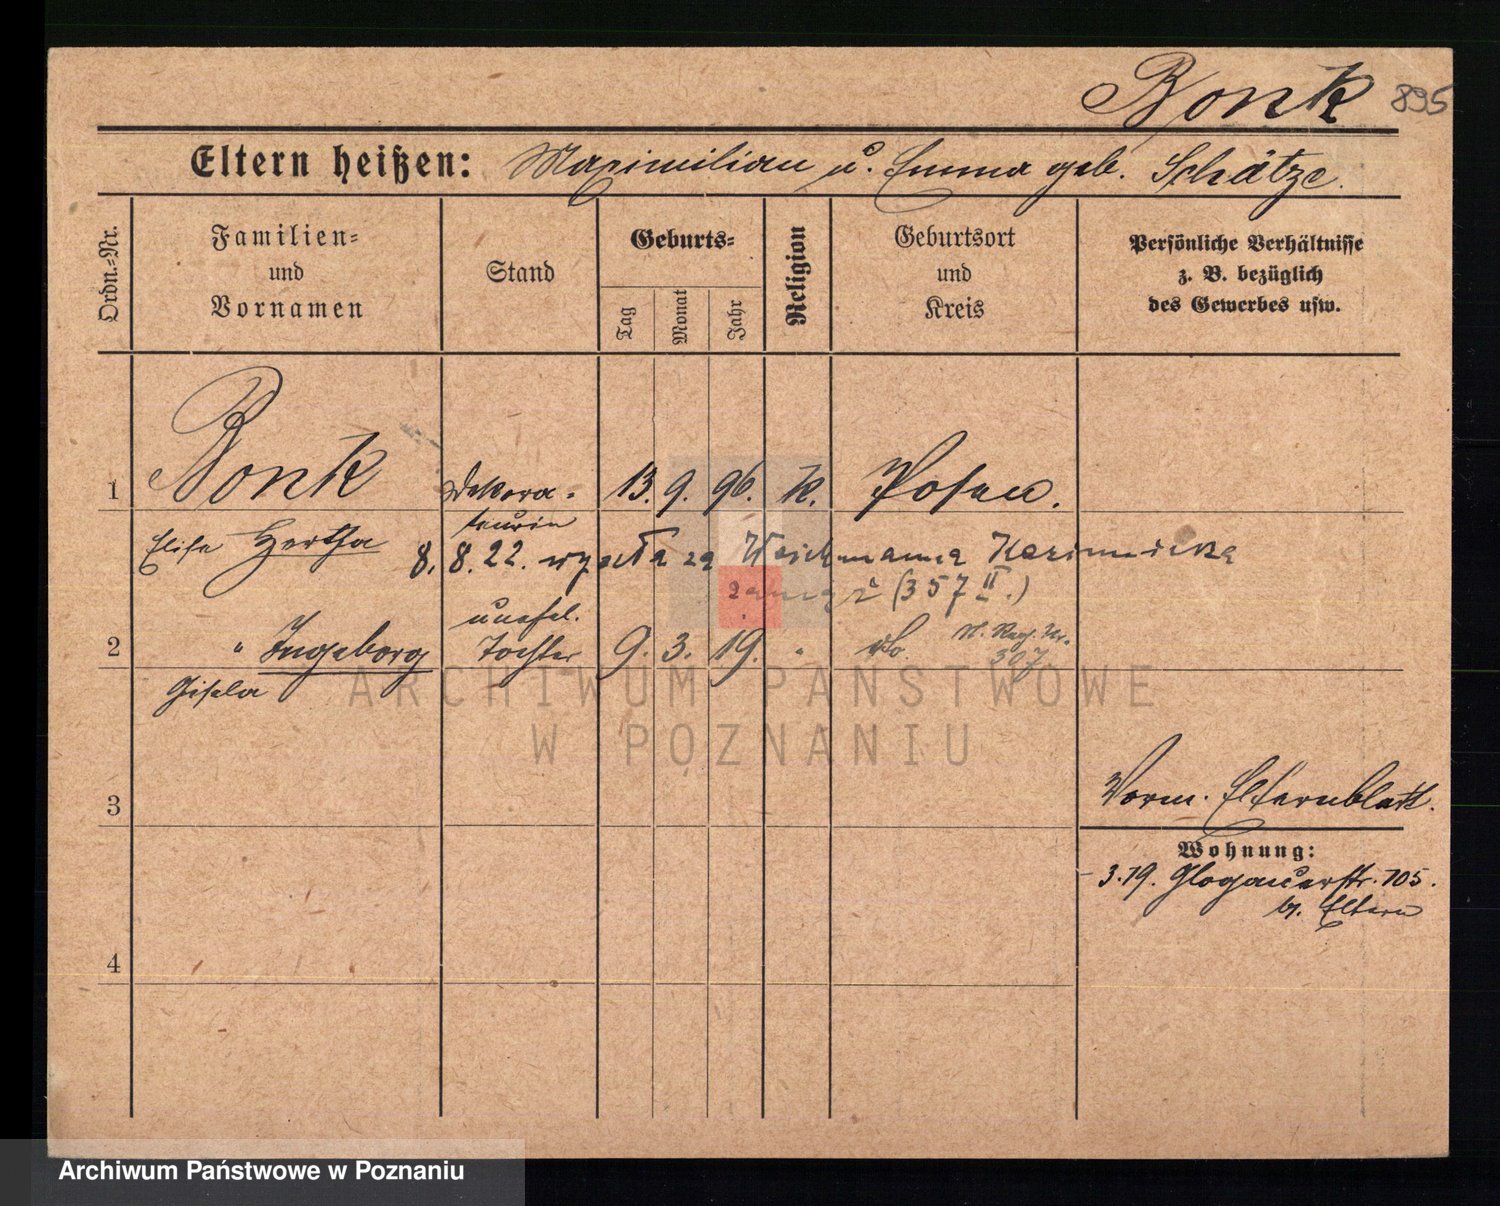 Bonk 895
Eltern heißen: Maximilian u. Emma geb. Schätze.
Ordn.-Nr.
Familien-
und
Vornamen
Stand
Geburts-
Tag
Monat
Jahr
Religion
Geburtsort
und
Kreis
Persönliche Verhältnisse
z. B. bezüglich
des Gewerbes usw.
1 Bonk Dekora- 13. 9. 96. k. Posen.
teurin
Elise Hertha
8. 8. 22. wyszła za Weichmanna Kazimierza
(357 II.)
unehel.
2 " Ingeborg Tochter 9. 3. 19. " do. N. Reg. Nr.
307
Gisela
ARCHIWUM PAŃSTWOWE
W POZNANIU
Vorm. Elternblatt.
3
Wohnung:
3.19. Glogauerstr. 105.
b. Eltern
4
Archiwum Państwowe w Poznaniu